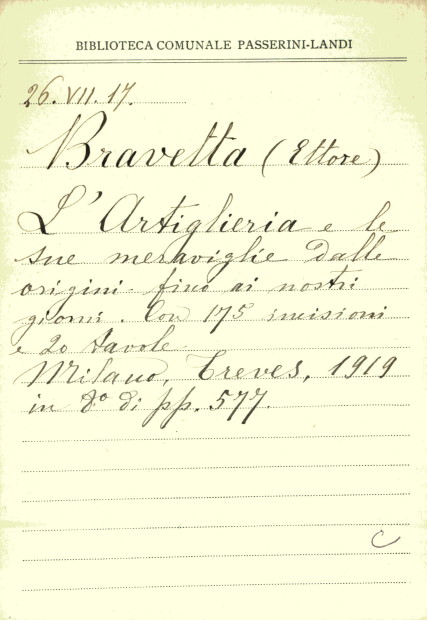 BIBLIOTECA COMUNALE PASSERINI-LANDI
26. VII. 17.
Bravetta (Ettore)
L'Artiglieria e le
sue meraviglie dalle
origini fino ai nostri
giorni. Con 175 incisioni
e 20 tavole
Milano, Treves, 1919
in 8° di pp. 577.
C